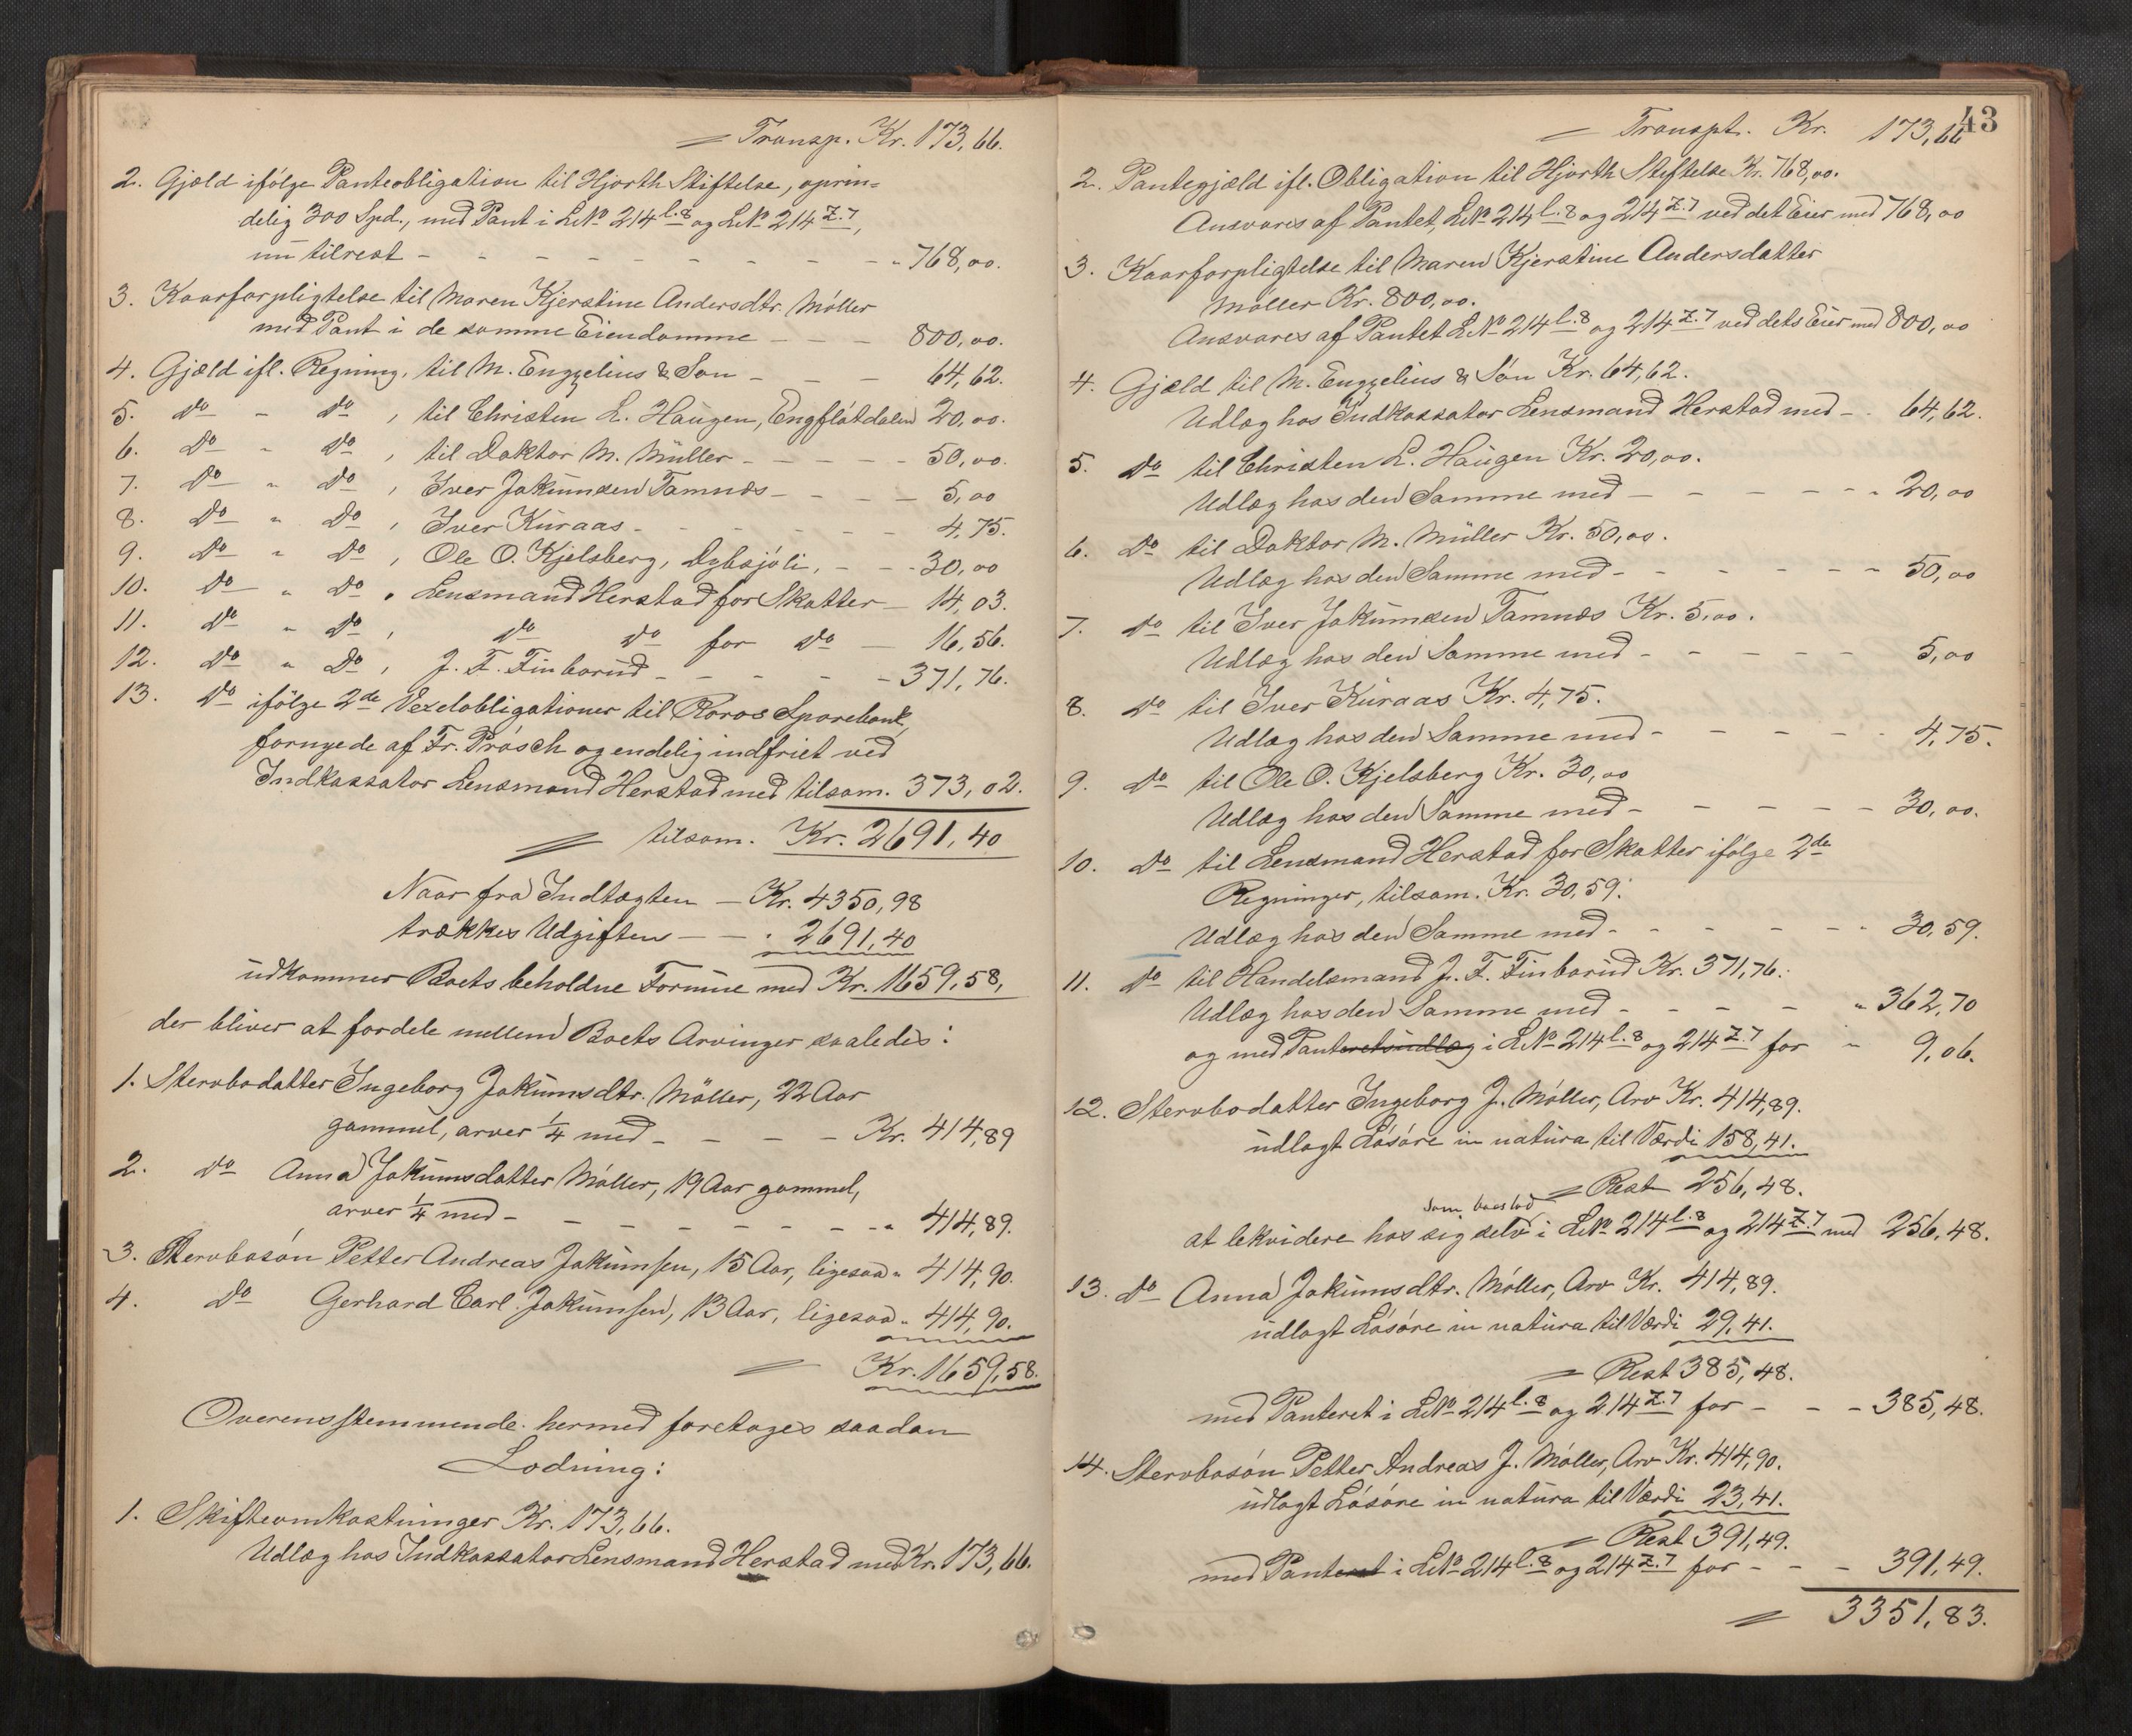 = Transp. Kr. 173,66.
2. Gjæld ifölge Panteobligation til Hjorth Stiftelse, oprin-
delig 300 Spd., med Pant i LNo 214 l.8 og LNo 214 Z.7,
nu tilrest - - - - - - - - - - " 768,00.
3. Kaarforpligtelse til Maren Kjerstine Andersdtr. Möller
med Pant i de samme Eiendomme - - - 800,00.
4. Gjæld ifl. Regning, til M. Engzelius & Sön - - - 64,62.
5. do - do , til Christen L. Haugen, Engflátdalen 20,00.
6. do " do , til Doktor M. Müller - - - - - 50,00.
7. do " do , Iver Jokumsen Tamnæs - - - - 5,00
8. do " do , Iver Kuraas - - - - - - 4,75.
9. do " do , Ole O. Kjelsberg, Dybsjöli, - - - 30,00
10. do " do " Lensmand Herstad for Skatter - 14,03.
11. do " do , do do for do - 16,56.
12. do " do , J. F. Finborud - - - - - 371,76.
13. do ifölge 2de Vexelobligationer til Röros Sparebank,
fornyede af Fr. Prösch og endelig indfriet ved
Indkassator Lensmand Herstad med tilsam. 373,02.
= tilsam. Kr. 2691,40
Naar fra Indtægten - Kr. 4350,98
trækkes Udgiften - - " 2691,40
udkommer Boets beholdne Formue med Kr. 1659,58,
der bliver at fordele mellem Boets Arvinger saaledes:
1. Stervbodatter Ingeborg Jokumsdtr. Möller, 22 Aar
gammel, arver 1/4 med - - - - Kr. 414,89
2. do Anna Jokumsdatter Möller, 19 Aar gammel,
arver 1/4 med - - - - - - - - " 414,89.
3. Stervbosön Petter Andreas Jokumsen, 15 Aar, ligesaa " 414,90.
4. do Gerhard Carl Jokumsen, 13 Aar, ligesaa " 414,90.
= Kr. 1659,58.
Overensstemmende hermed foretages saadan
Lodning:
1. Skifteomkostninger Kr. 173,66.
Udlæg hos Indkassator Lensmand Herstad med Kr. 173,66.
43
= Transpt. Kr. 173,66
2. Pantegjæld ifl. Obligation til Hjorth Stiftelse Kr. 768,00.
Ansvares af Pantet, LNo 214 l.8 og 214 Z.7 ved det Eier med 768,00
3. Kaarforpligtelse til Maren Kjerstine Andersdatter
Möller Kr. 800,00.
Ansvares af Pantet LNo 214 l.8 og 214 Z.7 ved dets Eier med 800,00
4. Gjæld til M. Engzelius & Sön Kr. 64,62.
Udlæg hos Indkassator Lensmand Herstad med - . 64,62.
5. do til Christen L. Haugen Kr. 20,00.
Udlæg hos den Samme med - - - - - - " 20,00
6. do til Doktor M. Müller Kr. 50,00.
Udlæg hos den Samme med - - - - - - 50,00
7. do til Iver Jokumsen Tamnæs Kr. 5,00.
Udlæg hos den Samme med - - - - - 5,00
8. do til Iver Kuraas Kr. 4,75.
Udlæg hos den Samme med - - - - - 4,75.
9. do til Ole O. Kjelsberg Kr. 30,00
Udlæg hos den Samme med - - - - - 30,00.
10. do til Lensmand Herstad for Skatter ifölge 2de
Regninger, tilsam. Kr. 30,59.
Udlæg hos den Samme med - - - - - " 30,59.
11. do til Handelsmand J. F. Finborud Kr. 371,76.
Udlæg hos den Samme med - - - - - " 362,70
og med Panteretsudlæg i LNo 214 l.8 og 214 Z.7 for " 9,06.
12. Stervbodatter Ingeborg J. Möller, Arv Kr. 414,89.
udlagt Lösöre in natura til Værdi 158,41.
= Rest 256,48.
at lekvidere hos sig selv i LNo 214 l.8 og 214 Z.7 med 256,48.
13. do Anna Jokumsdtr. Möller, Arv Kr. 414,89.
udlagt Lösöre in natura til Værdi 29,41.
= Rest 385,48.
med Panteret i LNo 214 l.8 og 214 Z.7 for - - - 385,48.
14. Stervbosön Petter Andreas J. Möller, Arv Kr. 414,90.
udlagt Lösöre in natura til Værdi 23,41.
= Rest 391,49.
med Panteret i LNo 214 l.8 og 214 Z.7 for - - - 391,49.
= 3351,83.